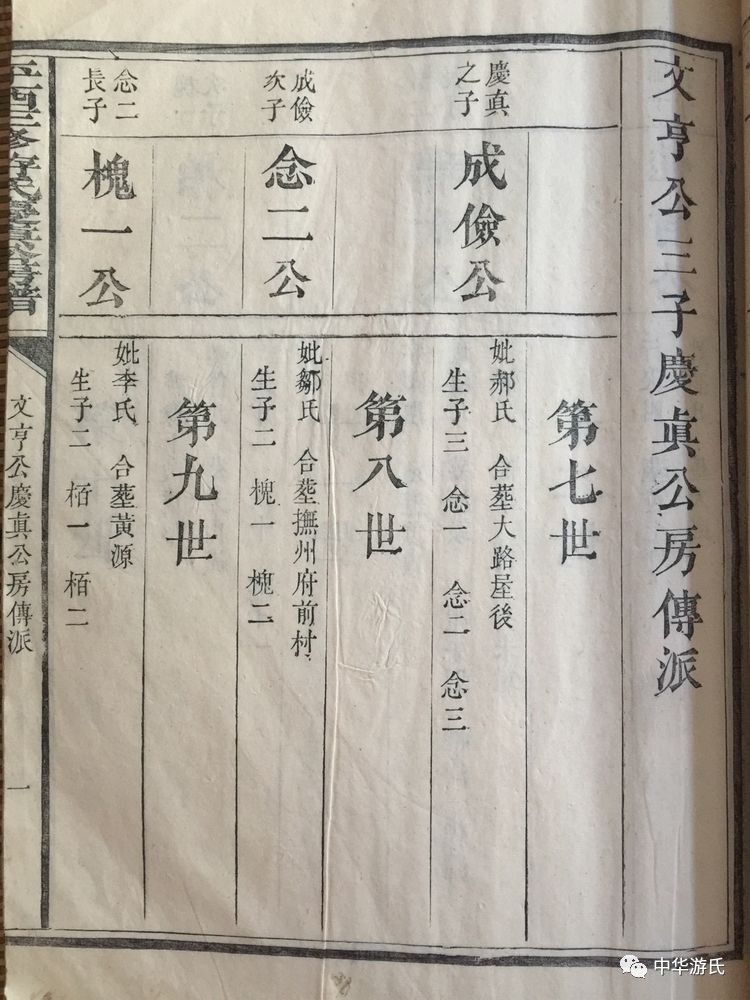 文亨公三子慶眞公房傳派
第七世
慶眞
之子
成儉公
妣郝氏 合塟大路屋後
生子三 念一 念二 念三
第八世
成儉
次子
念二公
妣鄒氏 合塟撫州府前村
生子二 槐一 槐二
第九世
念二
長子
槐一公
妣李氏 合塟黃源
生子二 栢一 栢二
文亨公慶眞公房傳派
一
中华游氏